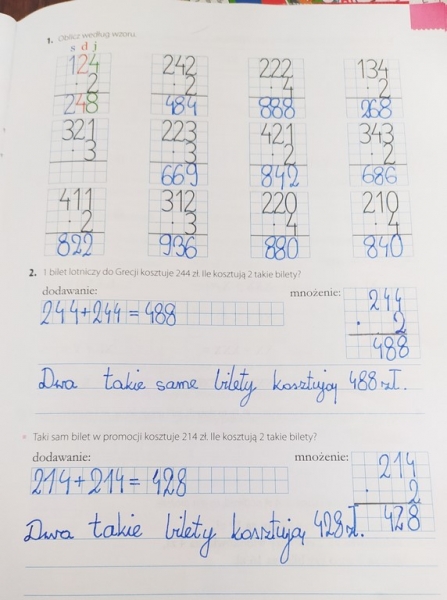 1. Oblicz według wzoru.
s d j
124 242 222 134
· 2 · 2 · 4 · 2
248 484 888 268
321 223 421 343
· 3 · 3 · 2 · 2
669 842 686
411 312 220 210
· 2 · 3 · 4 · 4
822 936 880 840
2. 1 bilet lotniczy do Grecji kosztuje 244 zł. Ile kosztują 2 takie bilety?
dodawanie: mnożenie:
244+244 = 488 244
· 2
488
Dwa takie same bilety kosztują 488 zł.
• Taki sam bilet w promocji kosztuje 214 zł. Ile kosztują 2 takie bilety?
dodawanie: mnożenie:
214+214 = 428 214
· 2
428
Dwa takie bilety kosztują 428 zł.